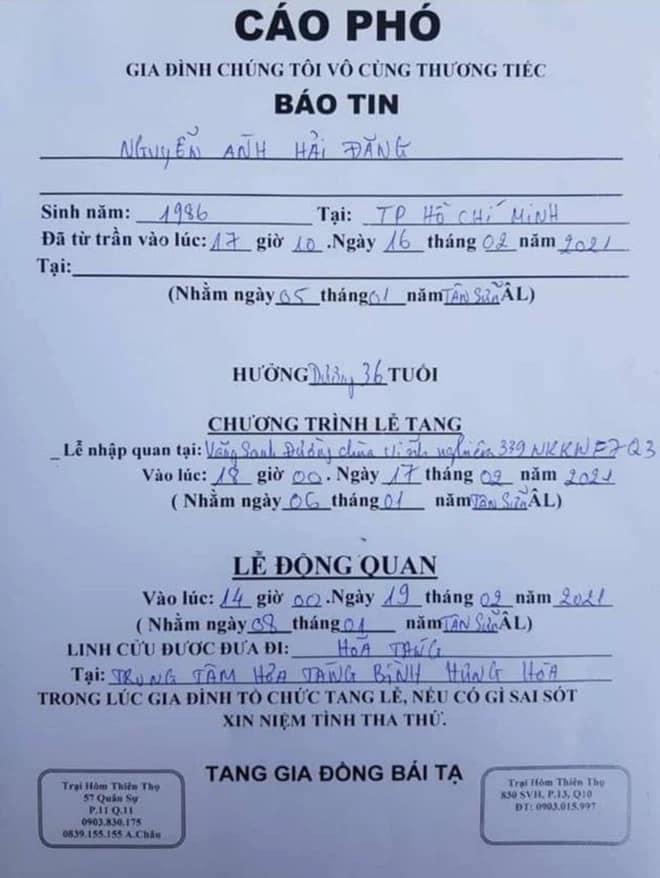 CÁO PHÓ
GIA ĐÌNH CHÚNG TÔI VÔ CÙNG THƯƠNG TIẾC
BÁO TIN
NGUYỄN ANH HẢI ĐĂNG
Sinh năm: 1986 Tại: TP HỒ CHÍ MINH
Đã từ trần vào lúc: 17 giờ 10 .Ngày 16 tháng 02 năm 2021
Tại:
(Nhằm ngày 05 tháng 01 năm TÂN SỬU ÂL)
HƯỞNG Dương 36 TUỔI
CHƯƠNG TRÌNH LỄ TANG
_ Lễ nhập quan tại: Vãng Sanh Đường chùa Vĩnh nghiêm 339 NKKN F7 Q3
Vào lúc: 18 giờ 00 . Ngày 17 tháng 02 năm 2021
( Nhằm ngày 06 tháng 01 năm TÂN SỬU ÂL)
LỄ ĐỘNG QUAN
Vào lúc: 14 giờ 00 .Ngày 19 tháng 02 năm 2021
( Nhằm ngày 08 tháng 01 năm TÂN SỬU ÂL)
LINH CỬU ĐƯỢC ĐƯA ĐI: HỎA TÁNG
Tại: TRUNG TÂM HỎA TÁNG BÌNH HƯNG HÒA
TRONG LÚC GIA ĐÌNH TỔ CHỨC TANG LỄ, NẾU CÓ GÌ SAI SÓT
XIN NIỆM TÌNH THA THỨ.
TANG GIA ĐỒNG BÁI TẠ
Trại Hòm Thiên Thọ
57 Quân Sự
P.11 Q.11
0903.830.175
0839.155.155 A.Châu
Trại Hòm Thiên Thọ
830 SVH, P.13, Q10
ĐT: 0903.015.997